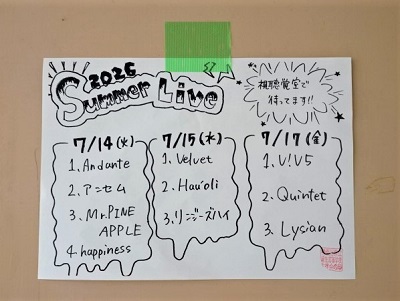 2026
Summer Live
視聴覚室で
待ってます!!
7/14(火)
1. Andante
2. アンセム
3. Mr.PINE
APPLE
4. happiness
7/15(水)
1. Velvet
2. Hau'oli
3. リンジーズハイ
7/17(金)
1. V!V5
2. Quintet
3. Lysian